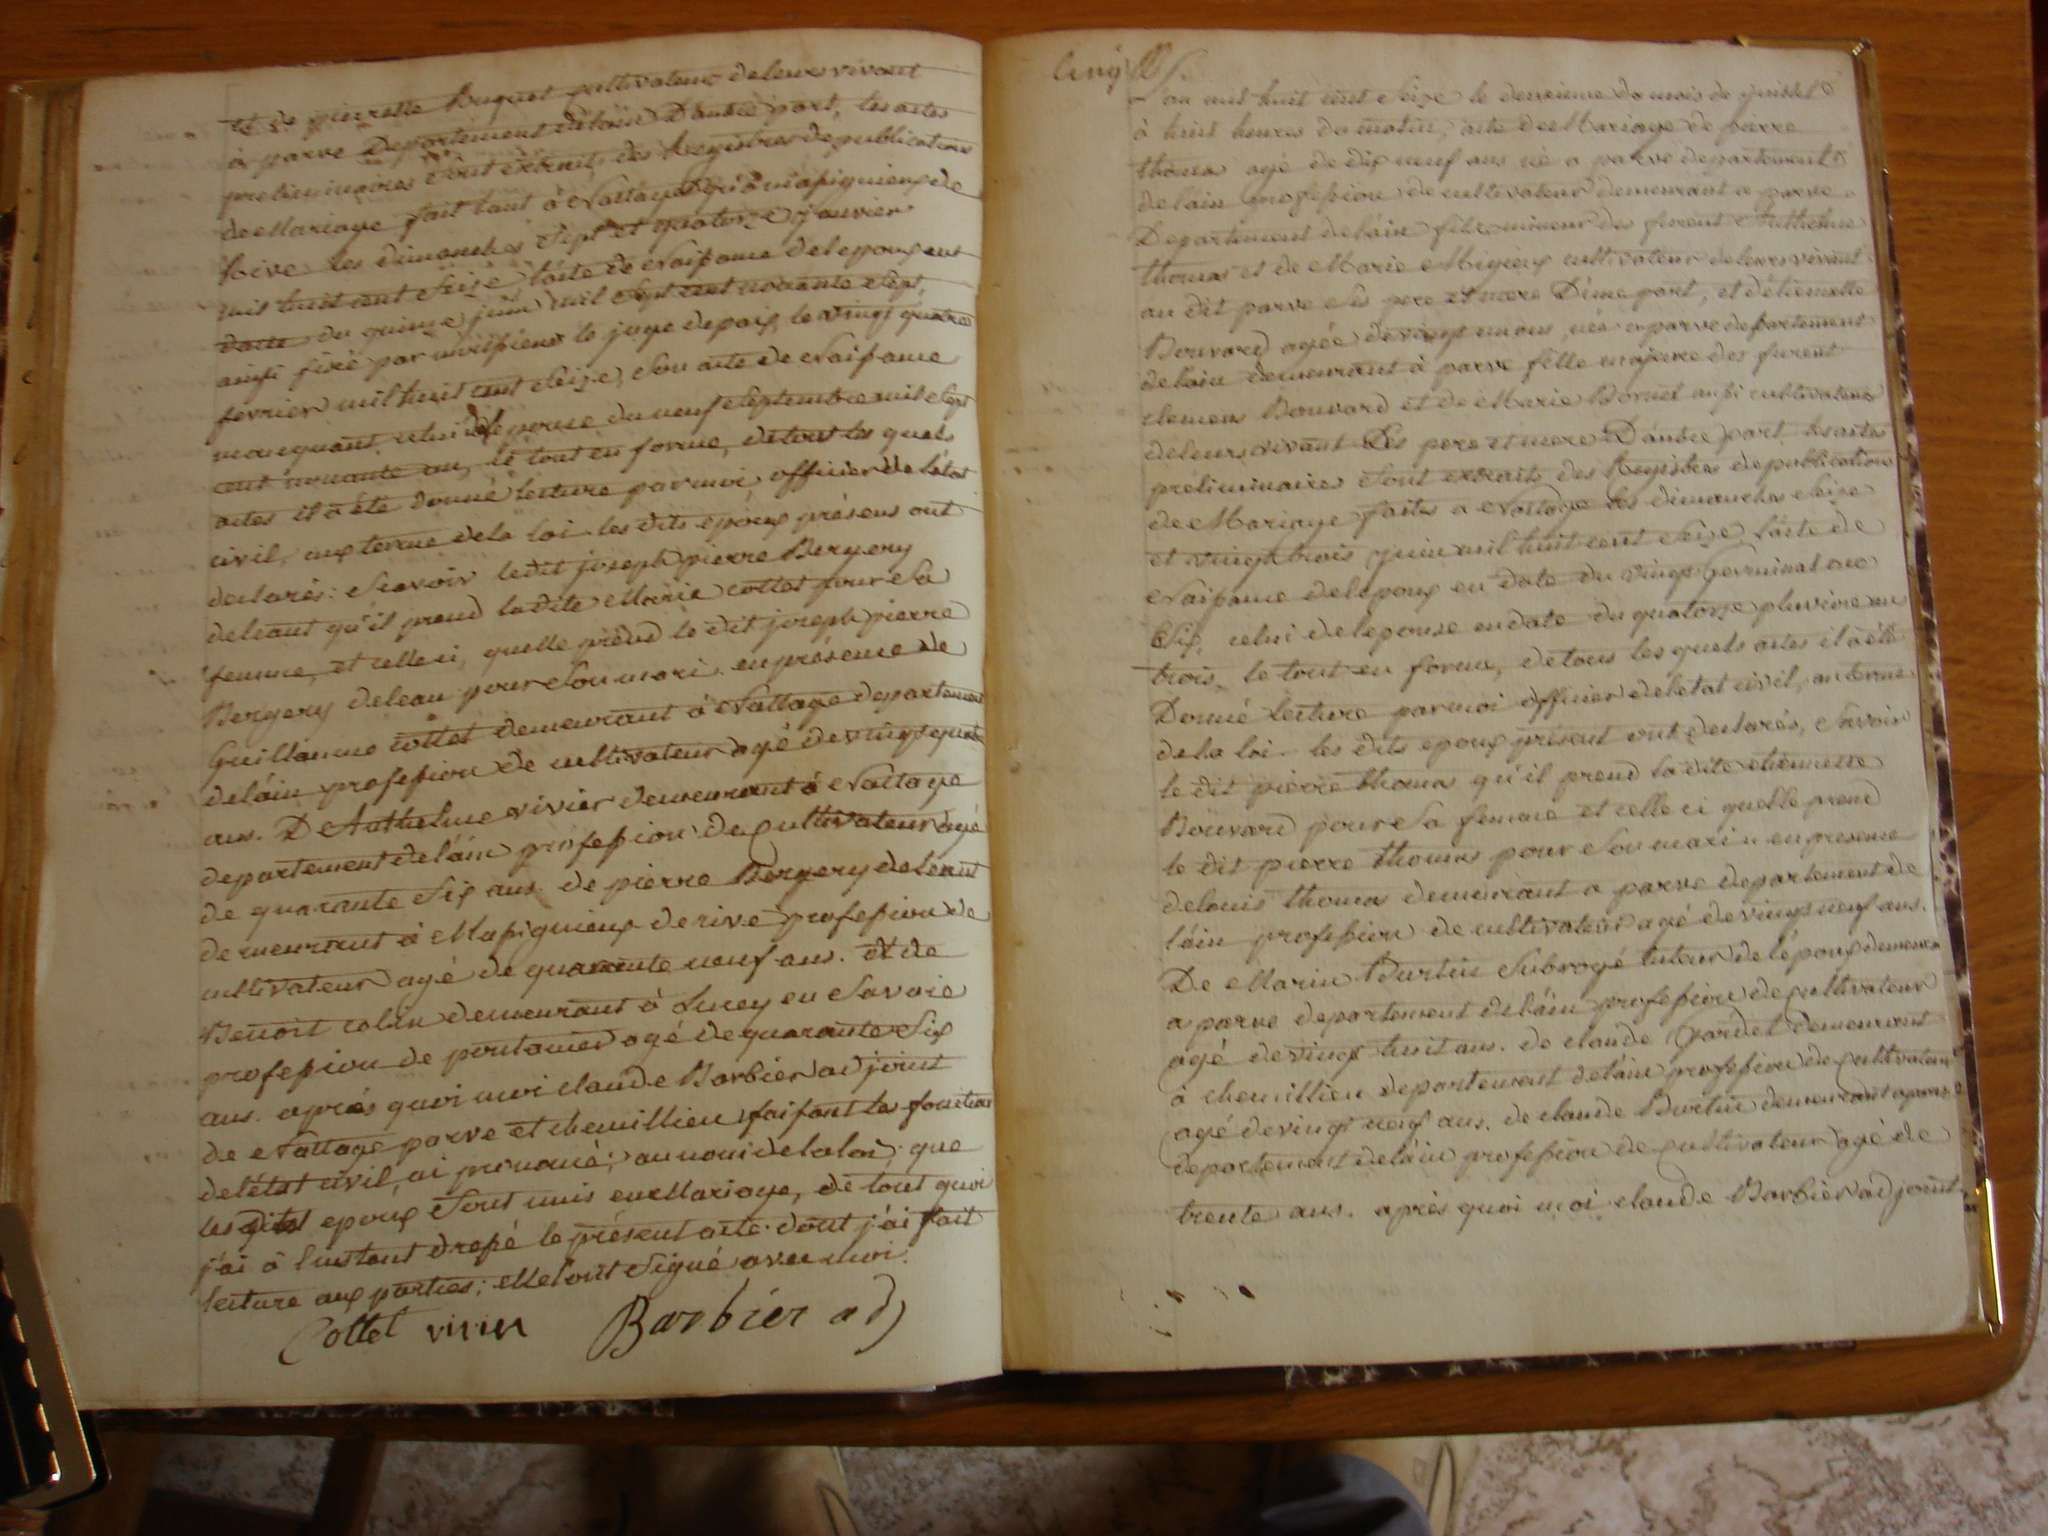 et de pierrette Buquet cultivateur de leurs vivant
à parve Departement de lain D'autre part, les actes
preliminaires sont extraits des Registres de publications
de Mariage fait tant à Nattage qu'à Massignieux de
Rive les dimanches sept et quatorze janvier
mil huit cent seize l'acte de Naissance de lepoux est
date du quinze juin mil sept cent nonante sept,
ainsi fixé par monsieur le juge de paix le vingt quatre
fevrier mil huit cent seize, son acte de Naissance
manquant celui de lepouse du neuf septembre mil sept
cent nonante un, le tout en forme, de tout les quels
actes il a été donné lecture par moi officier de létat
civil, aux terme de la loi. les dits époux présens ont
declarés: Scavoir ledit joseph pierre Bergery
deleaut qu'il prend la dite Marie collet pour sa
femme, et celle ci quelle prend le dit joseph pierre
Bergery deleau pour son mari en présence de
Guillaume collet demeurant à Nattage departement
de láin profession de cultivateur agé de vingt quatre
ans. D'Anthelme vivier demeurant à Nattage
departement de láin profession de cultivateur agé
de quarante six ans de pierre Bergery deleaut
demeurant à Massignieux de rive profession de
cultivateur agé de quarante neuf ans. et de
Benoit colin demeurant à Lucey en Savoie
profession de pontonier agé de quarante six
ans. aprés quoi moi claude Barbier adjoint
de Nattage parve et chemillieu faisant les fonction
de létat civil, ai prononcé; au nom de la loi que
les dits epoux sont unis en Mariage, de tout quoi
j'ai à l'instant dressé le présent acte dont j'ai fait
lecture aux parties; et le ont signé avec moi.
Collet vivier Barbier adj
cinq
L'an mil huit cent seize le deuxieme du mois de juillet
à huit heures du matin, acte de Mariage de pierre
thomas agé de dix neuf ans né a parve departement
de láin profession de cultivateur demeurant a parve
Departement de láin fils mineur des furent Anthelme
thomas et de Marie Migieux cultivateur de leurs vivant
au dit parve ses pere et mere D'une part, et d'étiennette
Bouvard agée de vingt un ans, née a parve departement
de lain demeurant à parve fille majeure des furent
clemens Bouvard et de Marie Bornet aussi cultivateur
de leurs vivant Ses pere et mere D'autre part. les actes
préliminaires sont extraits des Registres de publications
de Mariage faites a Nattage les dimanches seize
et vingt trois juin mil huit cent seize, l'acte de
Naissance de lepoux en date du vingt Germinal ane
six, celui de lepouse en date du quatorze pluviose an
trois, le tout en forme, de tous les quels actes il a été
Donné lecture par moi officier de létat civil, au terme
de la loi. les dits epoux présent ont declarés, Savoir
le dit pierre thomas qu'il prend la dite etiennette
Bouvard pour sa femme et celle ci quelle prend
le dit pierre thomas pour son mari en presence
de louis thomas demeurant a parve departement de
láin profession de cultivateur agé de vingt neuf ans.
De Marin Burtin subrogé tuteur de lépoux demeurant
a parve departement de láin profession de cultivateur
agé de vingt huit ans. de claude Gardet demeurant
à chemillieu departement de láin profession de cultivateur
agé de vingt neuf ans. de claude Burtin demeurant a parve
departement de láin profession de cultivateur agé de
trente ans. aprés quoi moi claude Barbier adjoint